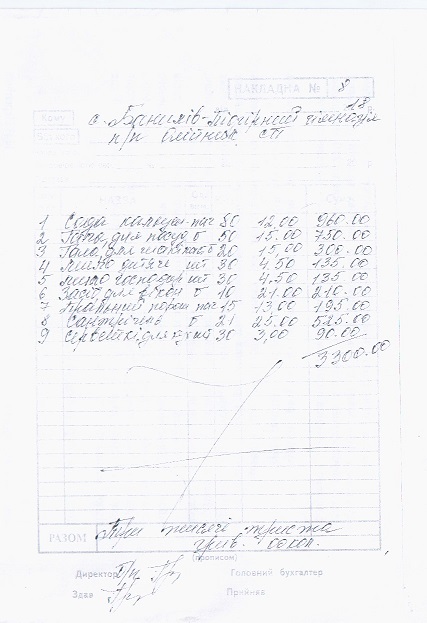 НАКЛАДНА № 8
с. Банилів-Підгірний гімназія
п/п Олійник СП
1 Сода кальцин-пач 80 12,00 960.00
2 Гала для посуд б 50 15.00 750.00
3 Гала для чистки б 20 15,00 300.00
4 Мило дитяче шт 30 4.50 135.00
5 Мило господар шт 30 4.50 135.00
6 Засіб для вікон б 10 21.00 210.00
7 Пральний порош пач 15 13,00 195.00
8 Сантрігень б 21 25.00 525.00
9 Серветки для кухні 30 3,00 90.00
3300.00
РАЗОМ Три тисячі триста
грив. 00 коп.
(прописом)
Директор Головний бухгалтер
Здав Прийняв